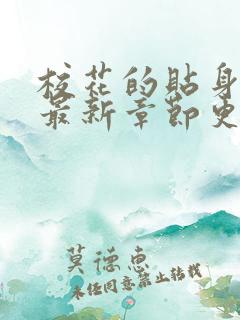 校花的贴身
最新章节史
莫德惠
未经同意禁止转载